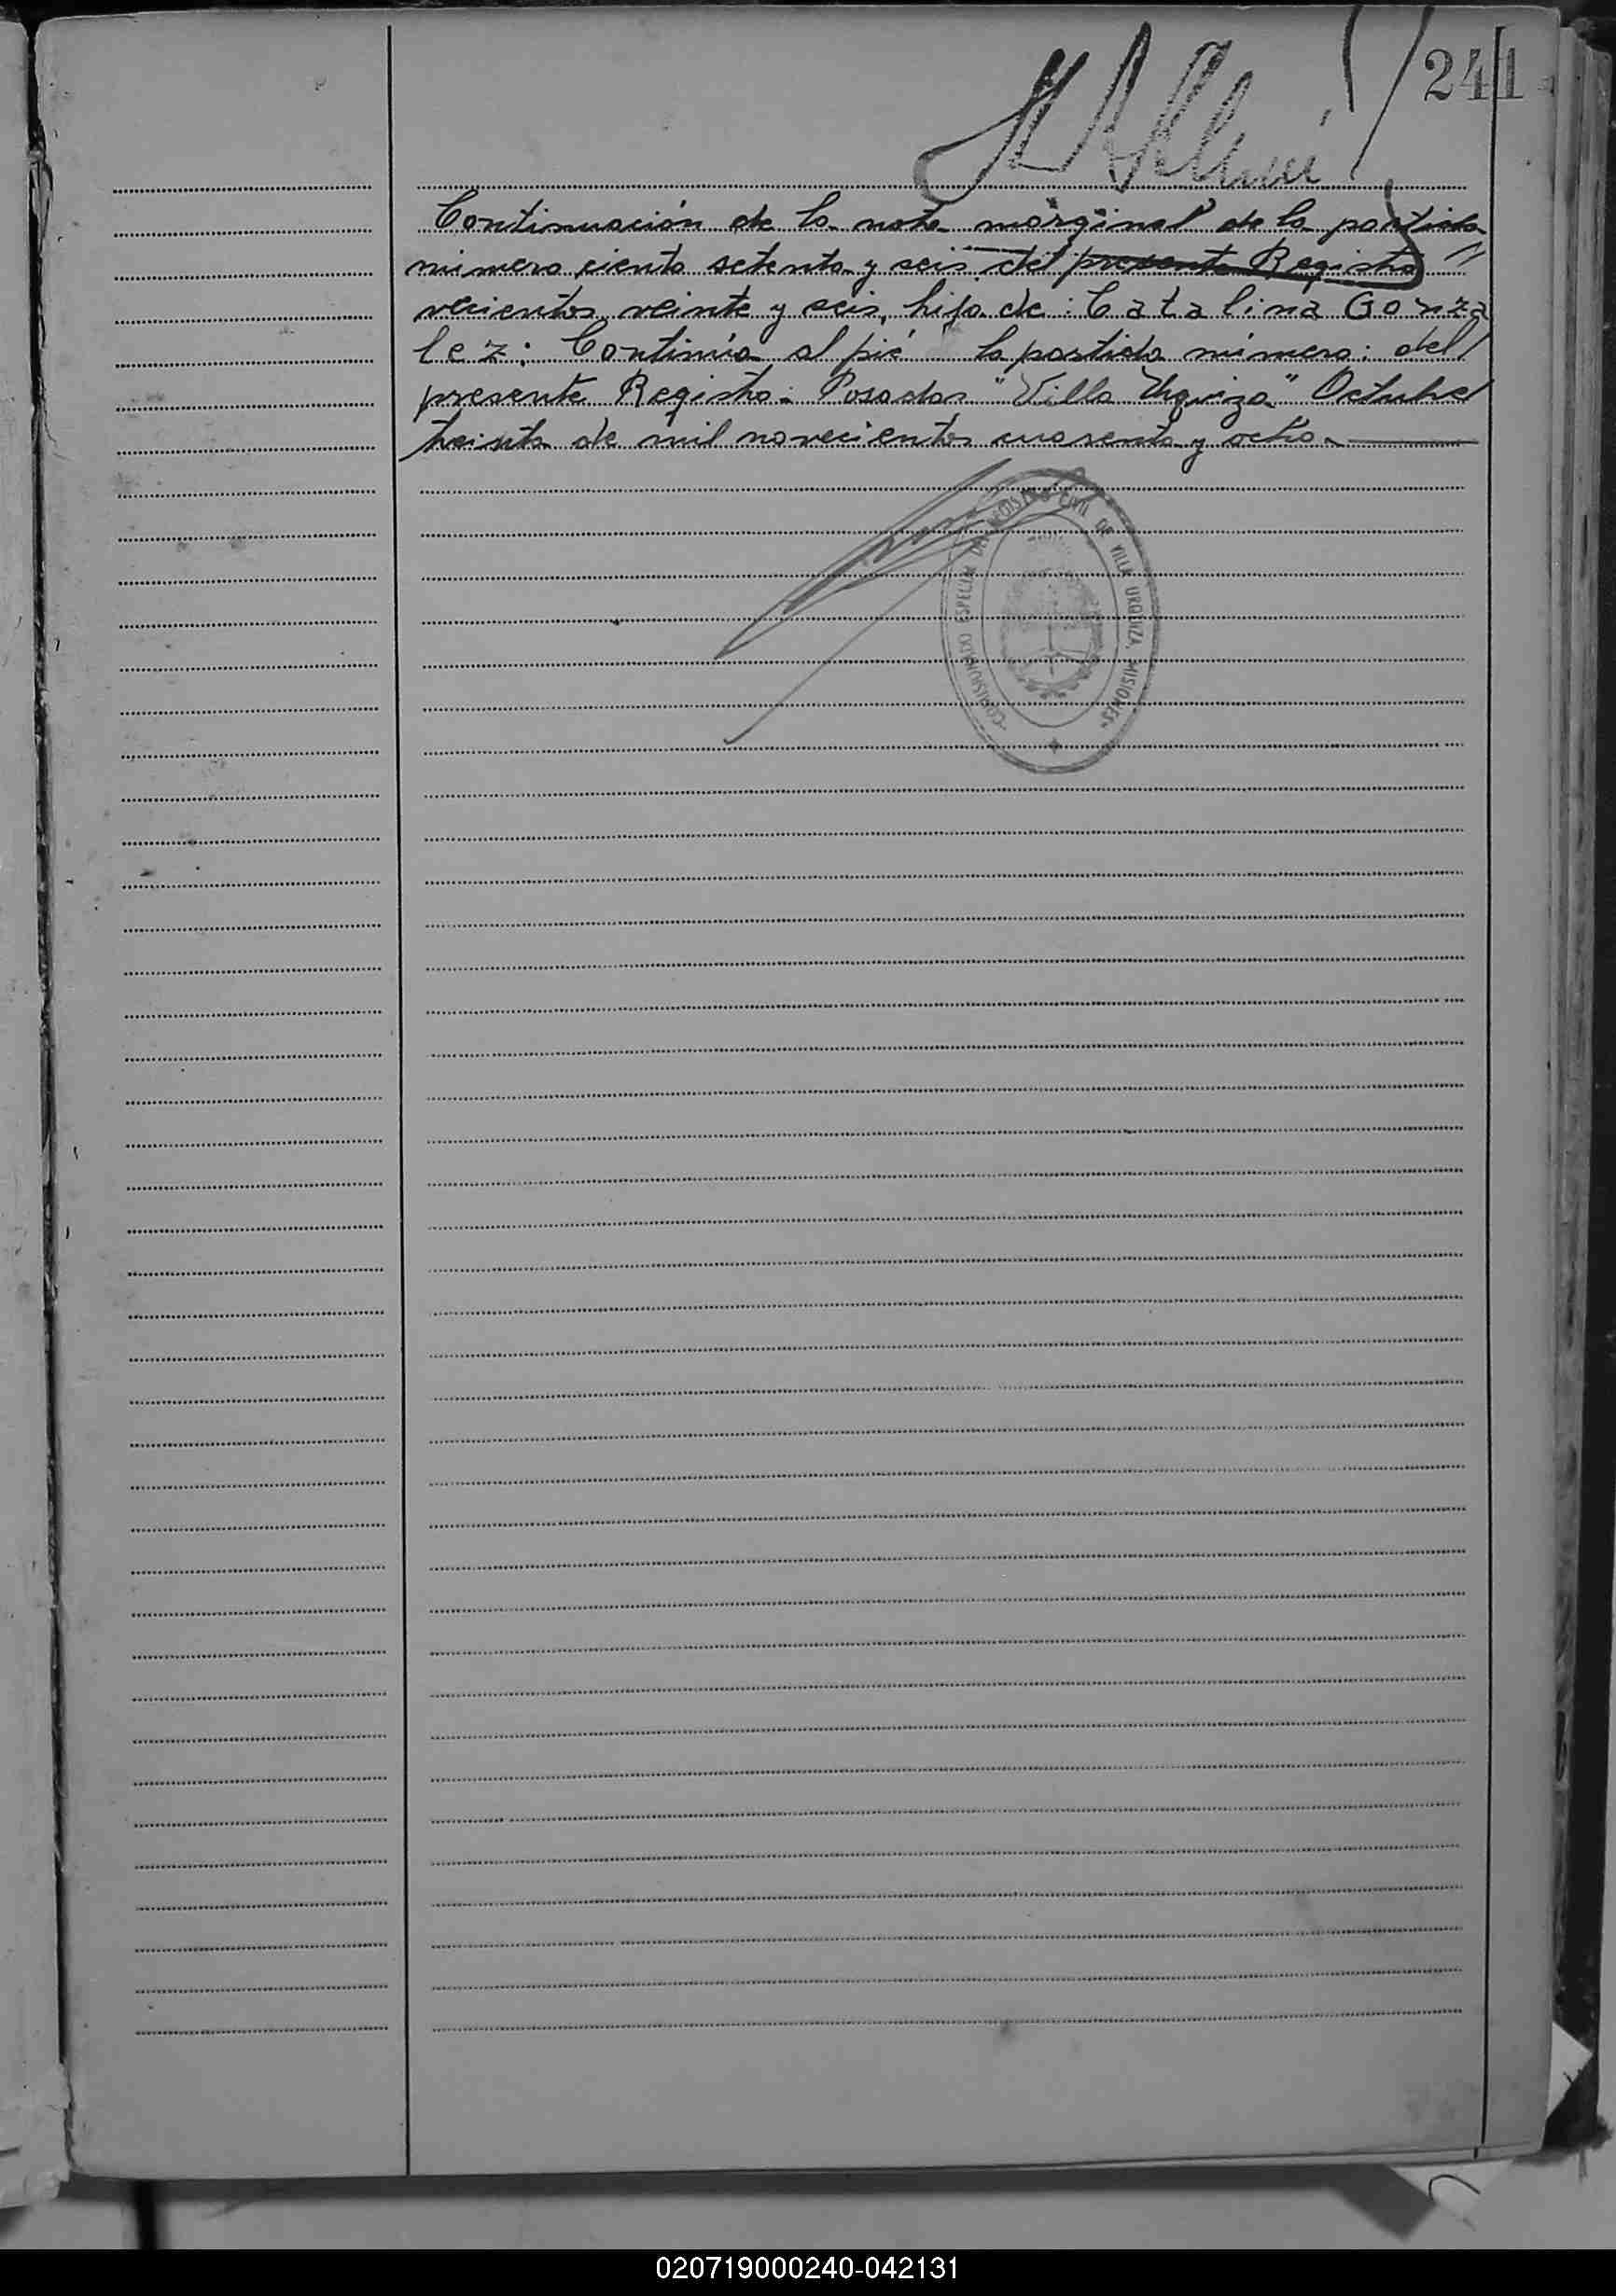 241
Continuación de la nota marginal de la partida
número ciento setenta y seis del presente Registro "
vecientos veinte y seis, hijo de : Catalina Gonza
lez: Continúa al pié la partida número: del
presente Registro: Posadas "Villa Urquiza" Octubre
treinta de mil novecientos cuarenta y ocho.
-COMISIONADO ESPECIAL DEL REGISTRO CIVIL DE VILLA URQUIZA, MISIONES-
020719000240-042131